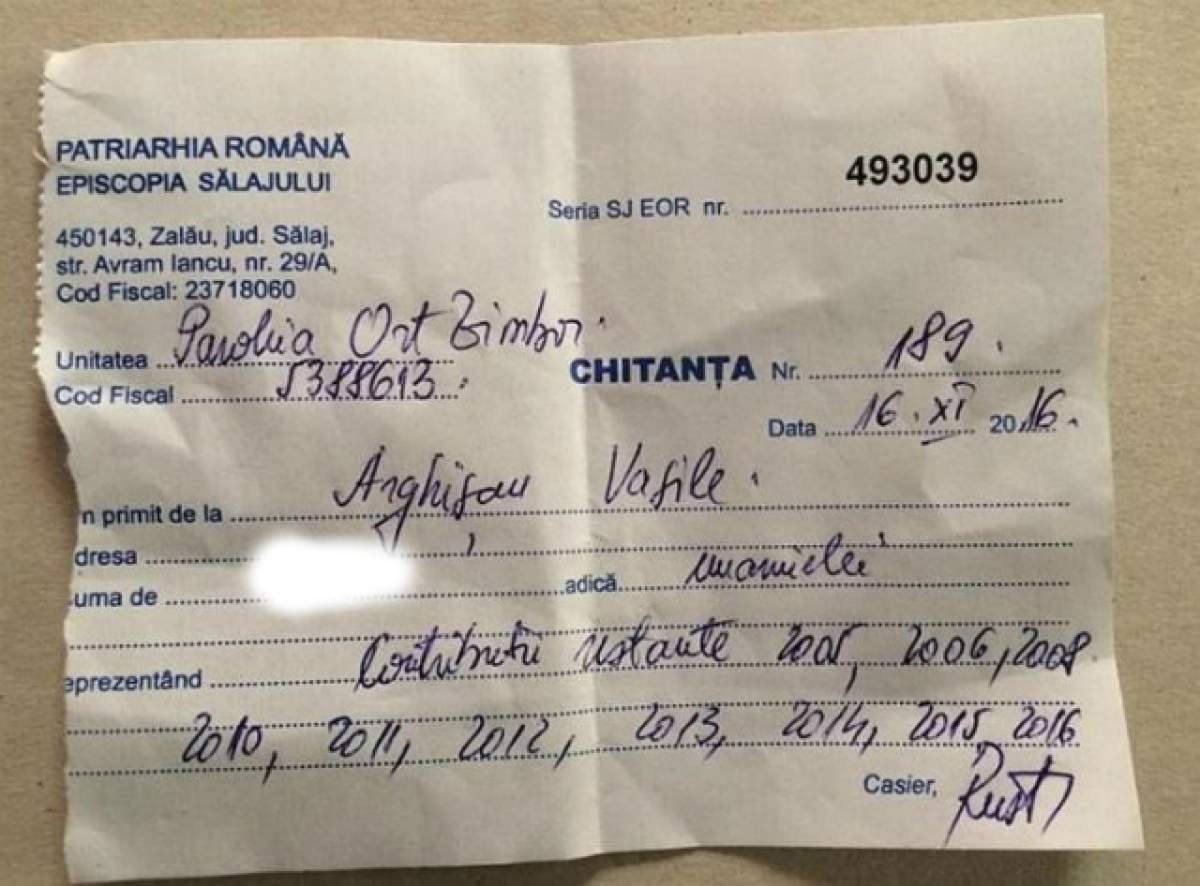 PATRIARHIA ROMÂNĂ
EPISCOPIA SĂLAJULUI
493039
Seria SJ EOR nr.
450143, Zalău, jud. Sălaj,
str. Avram Iancu, nr. 29/A,
Cod Fiscal: 23718060
Unitatea Parohia Ort Zimbor.
Cod Fiscal 5388613.
CHITANȚA Nr. 189.
Data 16. XI 2016.
n primit de la Arghișan Vasile.
dresa
uma de adică
eprezentând Contribuții restante 2005, 2006, 2008
2010, 2011, 2012, 2013, 2014, 2015, 2016
Casier,